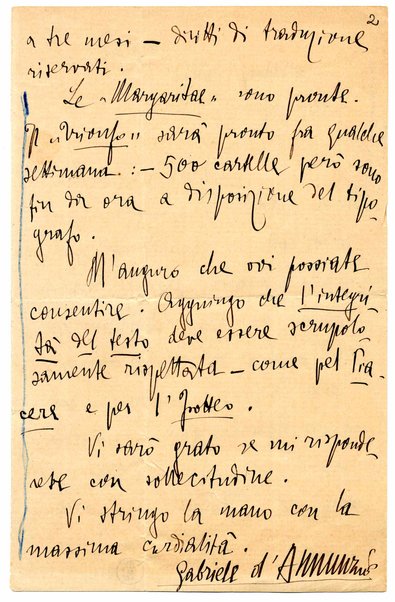 2
a tre mesi — diritti di traduzione
riservati.
Le "Margaritae" sono pronte.
Il "Trionfo" sarà pronto fra qualche
settimana: — 500 cartelle però sono
fin da ora a disposizione del tipo-
grafo.
M'auguro che voi possiate
consentire. Aggiungo che l'integri-
tà del testo deve essere scrupolo-
samente rispettata — come pel Pia-
cere e per l'
Vi sarò grato se mi risponde-
rete con sollecitudine.
Vi stringo la mano con la
massima cordialità.
Gabriele d'Annunzio